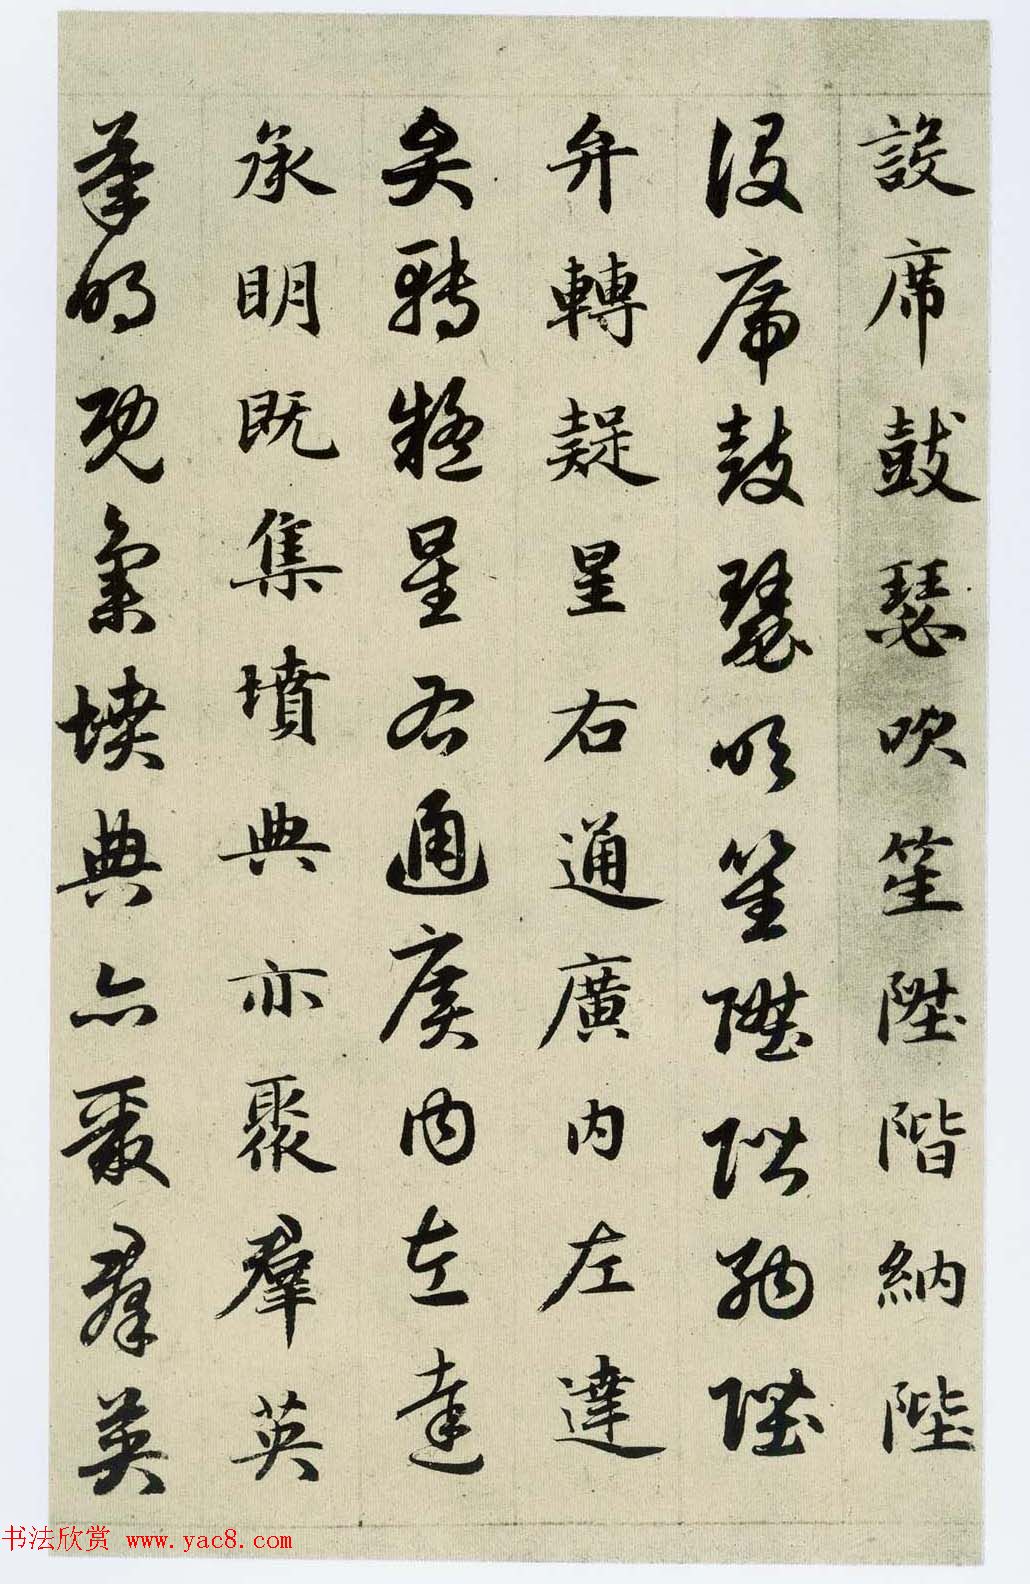 設席鼓瑟吹笙陞階納陛
設席鼓瑟吹笙陞階納陛
弁轉疑星右通廣內左達
弁轉疑星右通廣內左達
承明既集墳典亦聚羣英
承明既集墳典亦聚羣英
书法欣赏 www.yac8.com